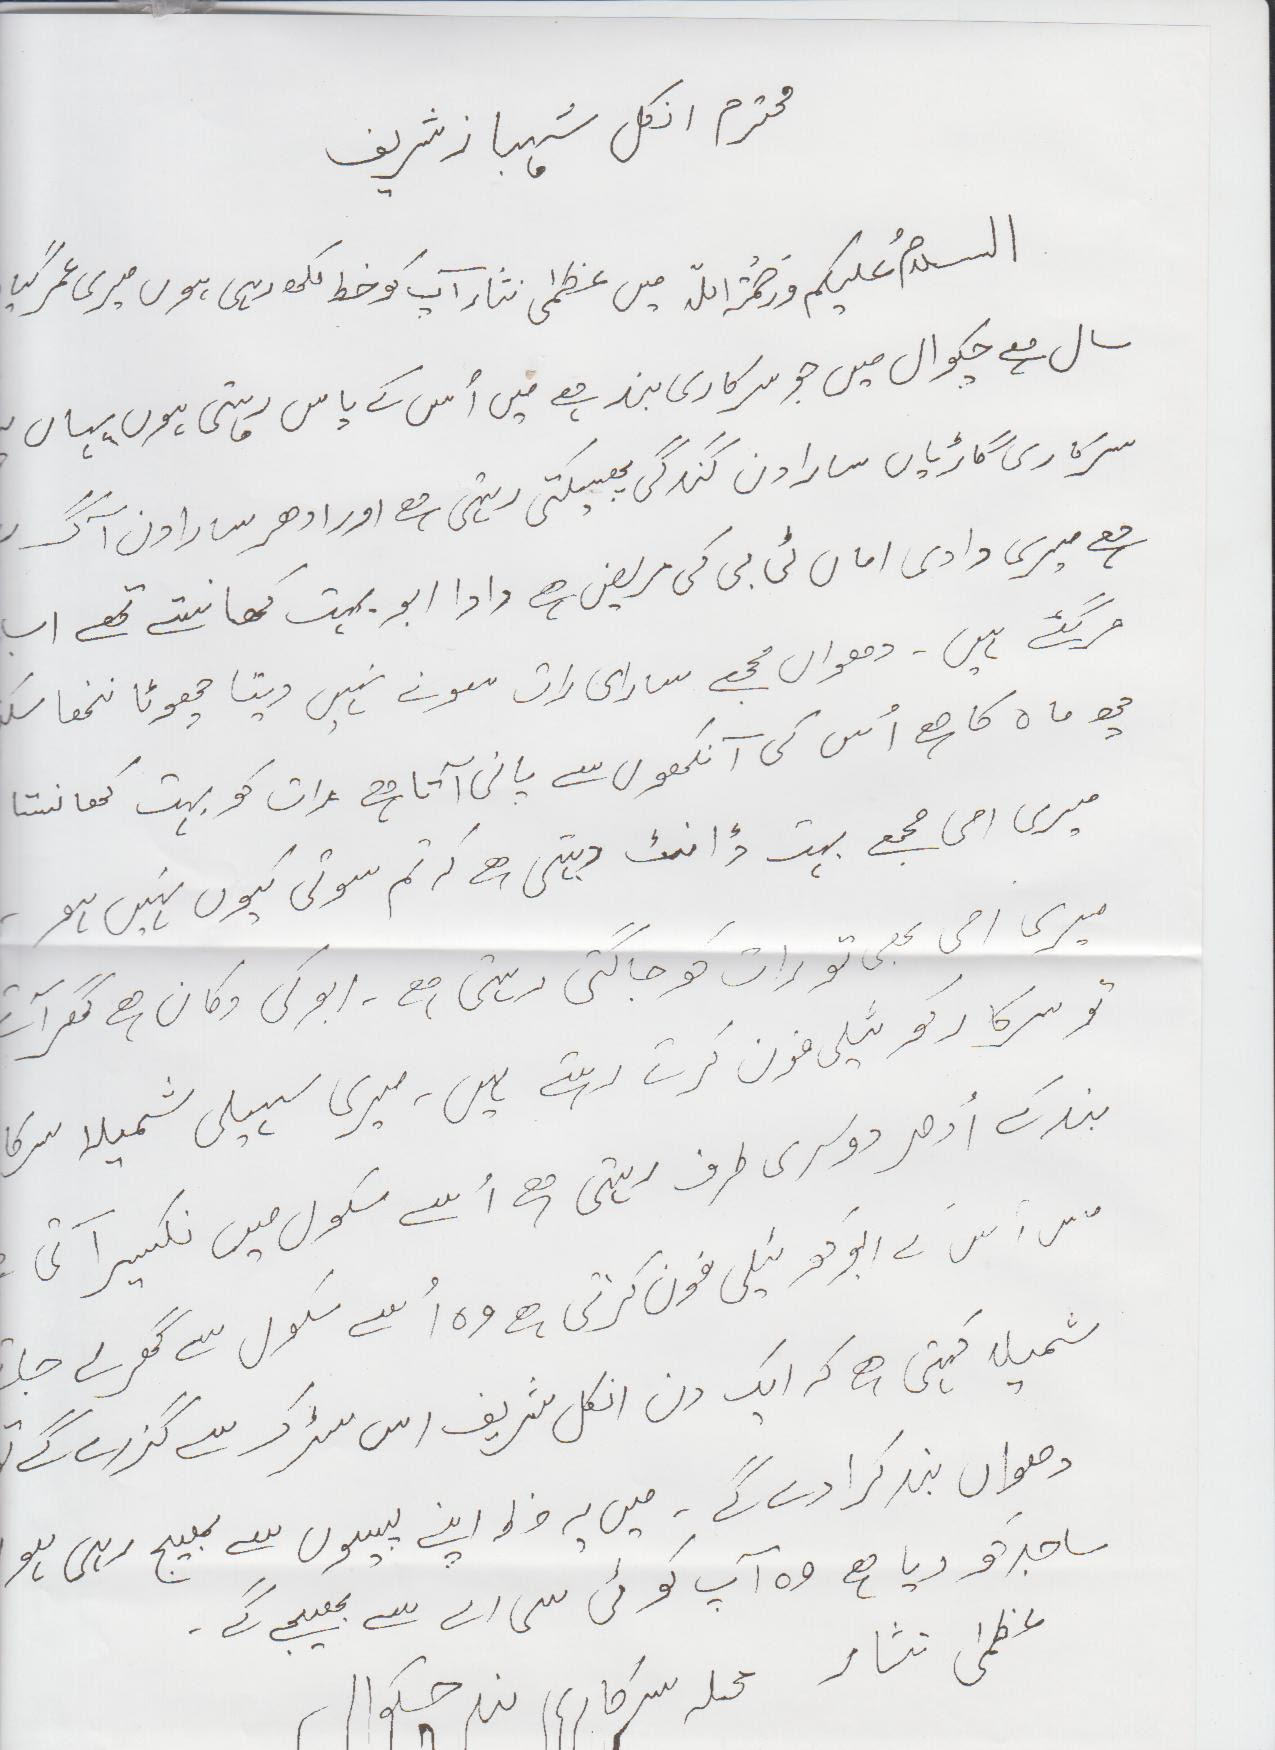 محترم انکل شہباز شریف
السلامُ علیکم وَرحمُتہ اللہ میں عظمیٰ نثار آپ کو خط لکھ رہی ہوں میری عمر گیا
سال ہے چکوال میں جو سرکاری بند ہے میں اُس کے پاس رہتی ہوں یہاں
سرکاری گاڑیاں سارا دن گندگی پھینکتی رہتی ہے اور ادھر سارا دن آگ
ہے میری دادی اماں ٹی بی کی مریض ہے دادا ابو بہت کھانستے تھے اب
مر گئے ہیں ۔ دھواں مجھے ساری رات سونے نہیں دیتا چھوٹا ننھا
چھ ماہ کا ہے اُس کی آنکھوں سے پانی آتا ہے رات کو بہت کھانستا
میری امی مجھے بہت ڈانٹ دیتی ہے کہ تم سوتی کیوں نہیں ہو ۔
میری امی بھی تو رات کو جاگتی رہتی ہے ۔ ابو کی دکان ہے گھر آتے
تو سرکار کو ٹیلی فون کرتے رہتے ہیں ۔ میری سہیلی شمیلا سرکا
بند کے اُدھر دوسری طرف رہتی ہے اُسے سکول میں نکسیر آتی
مس اُس کے ابو کو ٹیلی فون کرتی ہے وہ اُسے سکول سے گھر لے جاتے
شمیلا کہتی ہے کہ ایک دن انکل شریف اس سڑک سے گزرے گے تو
دھواں بند کرا دے گے ۔ میں یہ خط اپنے پیسوں سے بھیج رہی ہوں
ساجد کو دیا ہے وہ آپ کو ٹی سی ایس سے بھیجے گے ۔
عظمیٰ نثار محلہ سرکاری بند چکوال